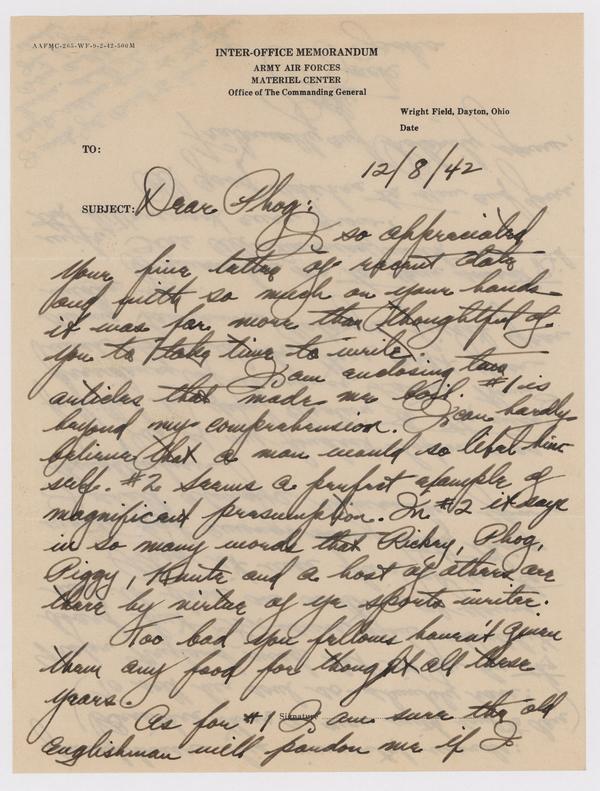 AAFMC-265-WF-9-2-42-500M
INTER-OFFICE MEMORANDUM
ARMY AIR FORCES
MATERIEL CENTER
Office of The Commanding General
Wright Field, Dayton, Ohio
Date
TO:
12/8/42
SUBJECT: Dear Phog:
I so appreciated
your fine letter of recent date
and with so much on your hands
it was far more than thoughtful of
you to take time to write.
I am enclosing two
articles that made me boil. #1 is
beyond my comprehension. I can hardly
believe that a man would so libel him
self. #2 seems a perfect example of
magnificant presumption. In #2 it says
in so many words that Rickey, Phog,
Piggy, Knute and a host of others are
there by virtue of ye sports writer.
Too bad you fellows haven't given
them any food for thought all these
years.
Signature
As for #1 I am sure the old
Englishman will pardon me if I